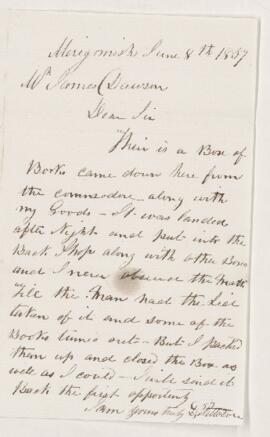 Merigomish June 8th 1857
Mr James Dawson
Dear Sir
Their is a Box of
Books came down here from
the commodore along with
my Goods - It was landed
after Night and put into the
Back Shop along with other Boxes
and I never observed the mark
till the Man had the Led
taken of it and some of the
Books turned out - But I packed
them up and closed the Box as
well as I could - I will send it
Back the first opportunity
I am Yours truly